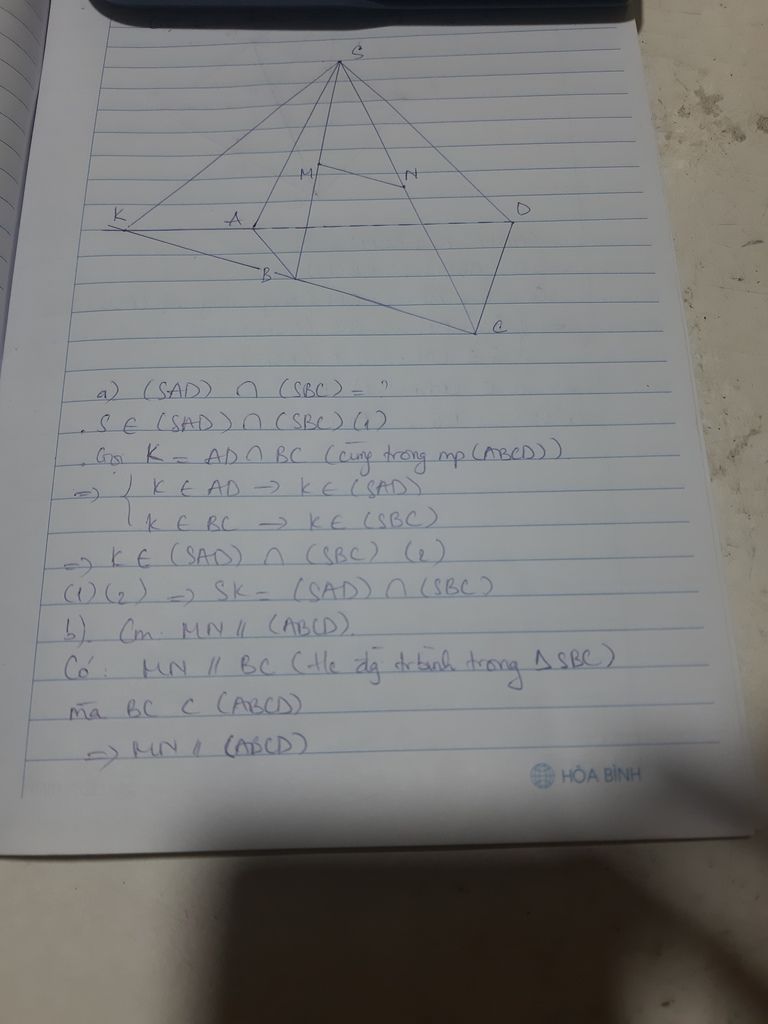 S
M
N
K
A
D
B
C
a) (SAD) ∩ (SBC) = ?
. S ∈ (SAD) ∩ (SBC) (1)
. Gọi K = AD ∩ BC (cùng trong mp (ABCD))
=> { K ∈ AD → K ∈ (SAD)
K ∈ BC → K ∈ (SBC)
=> K ∈ (SAD) ∩ (SBC) (2)
(1) (2) => SK = (SAD) ∩ (SBC)
b). Cm MN // (ABCD).
Có: MN // BC (t/c đg tr bình trong Δ SBC)
mà BC ⊂ (ABCD)
=> MN // (ABCD)
HÒA BÌNH